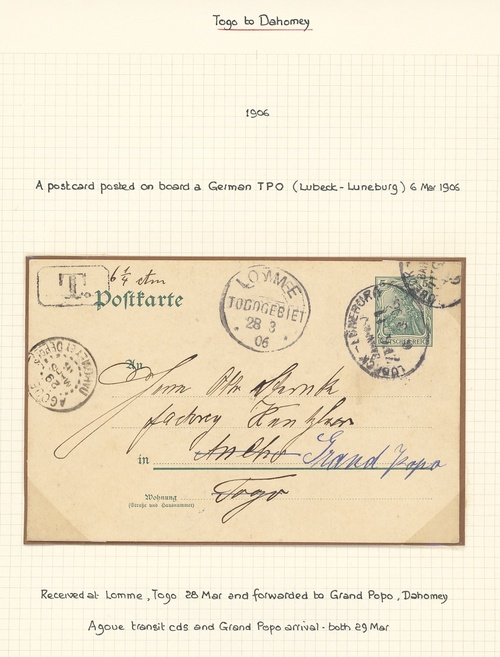 Togo to Dahomey
1906
A postcard posted on board a German TPO (Lubeck-Luneburg) 6 Mar 1906
T. 6 ¼ ctm
Postkarte
LOMME
TOGOGEBIET
28 3
06
DEUTSCHES REICH
An
Herrn Otto
factory
in Grand Popo
Togo
Wohnung
(Straße und Hausnummer)
Received at Lomme, Togo 28 Mar and forwarded to Grand Popo, Dahomey
Agoue transit cds and Grand Popo arrival - both 29 Mar